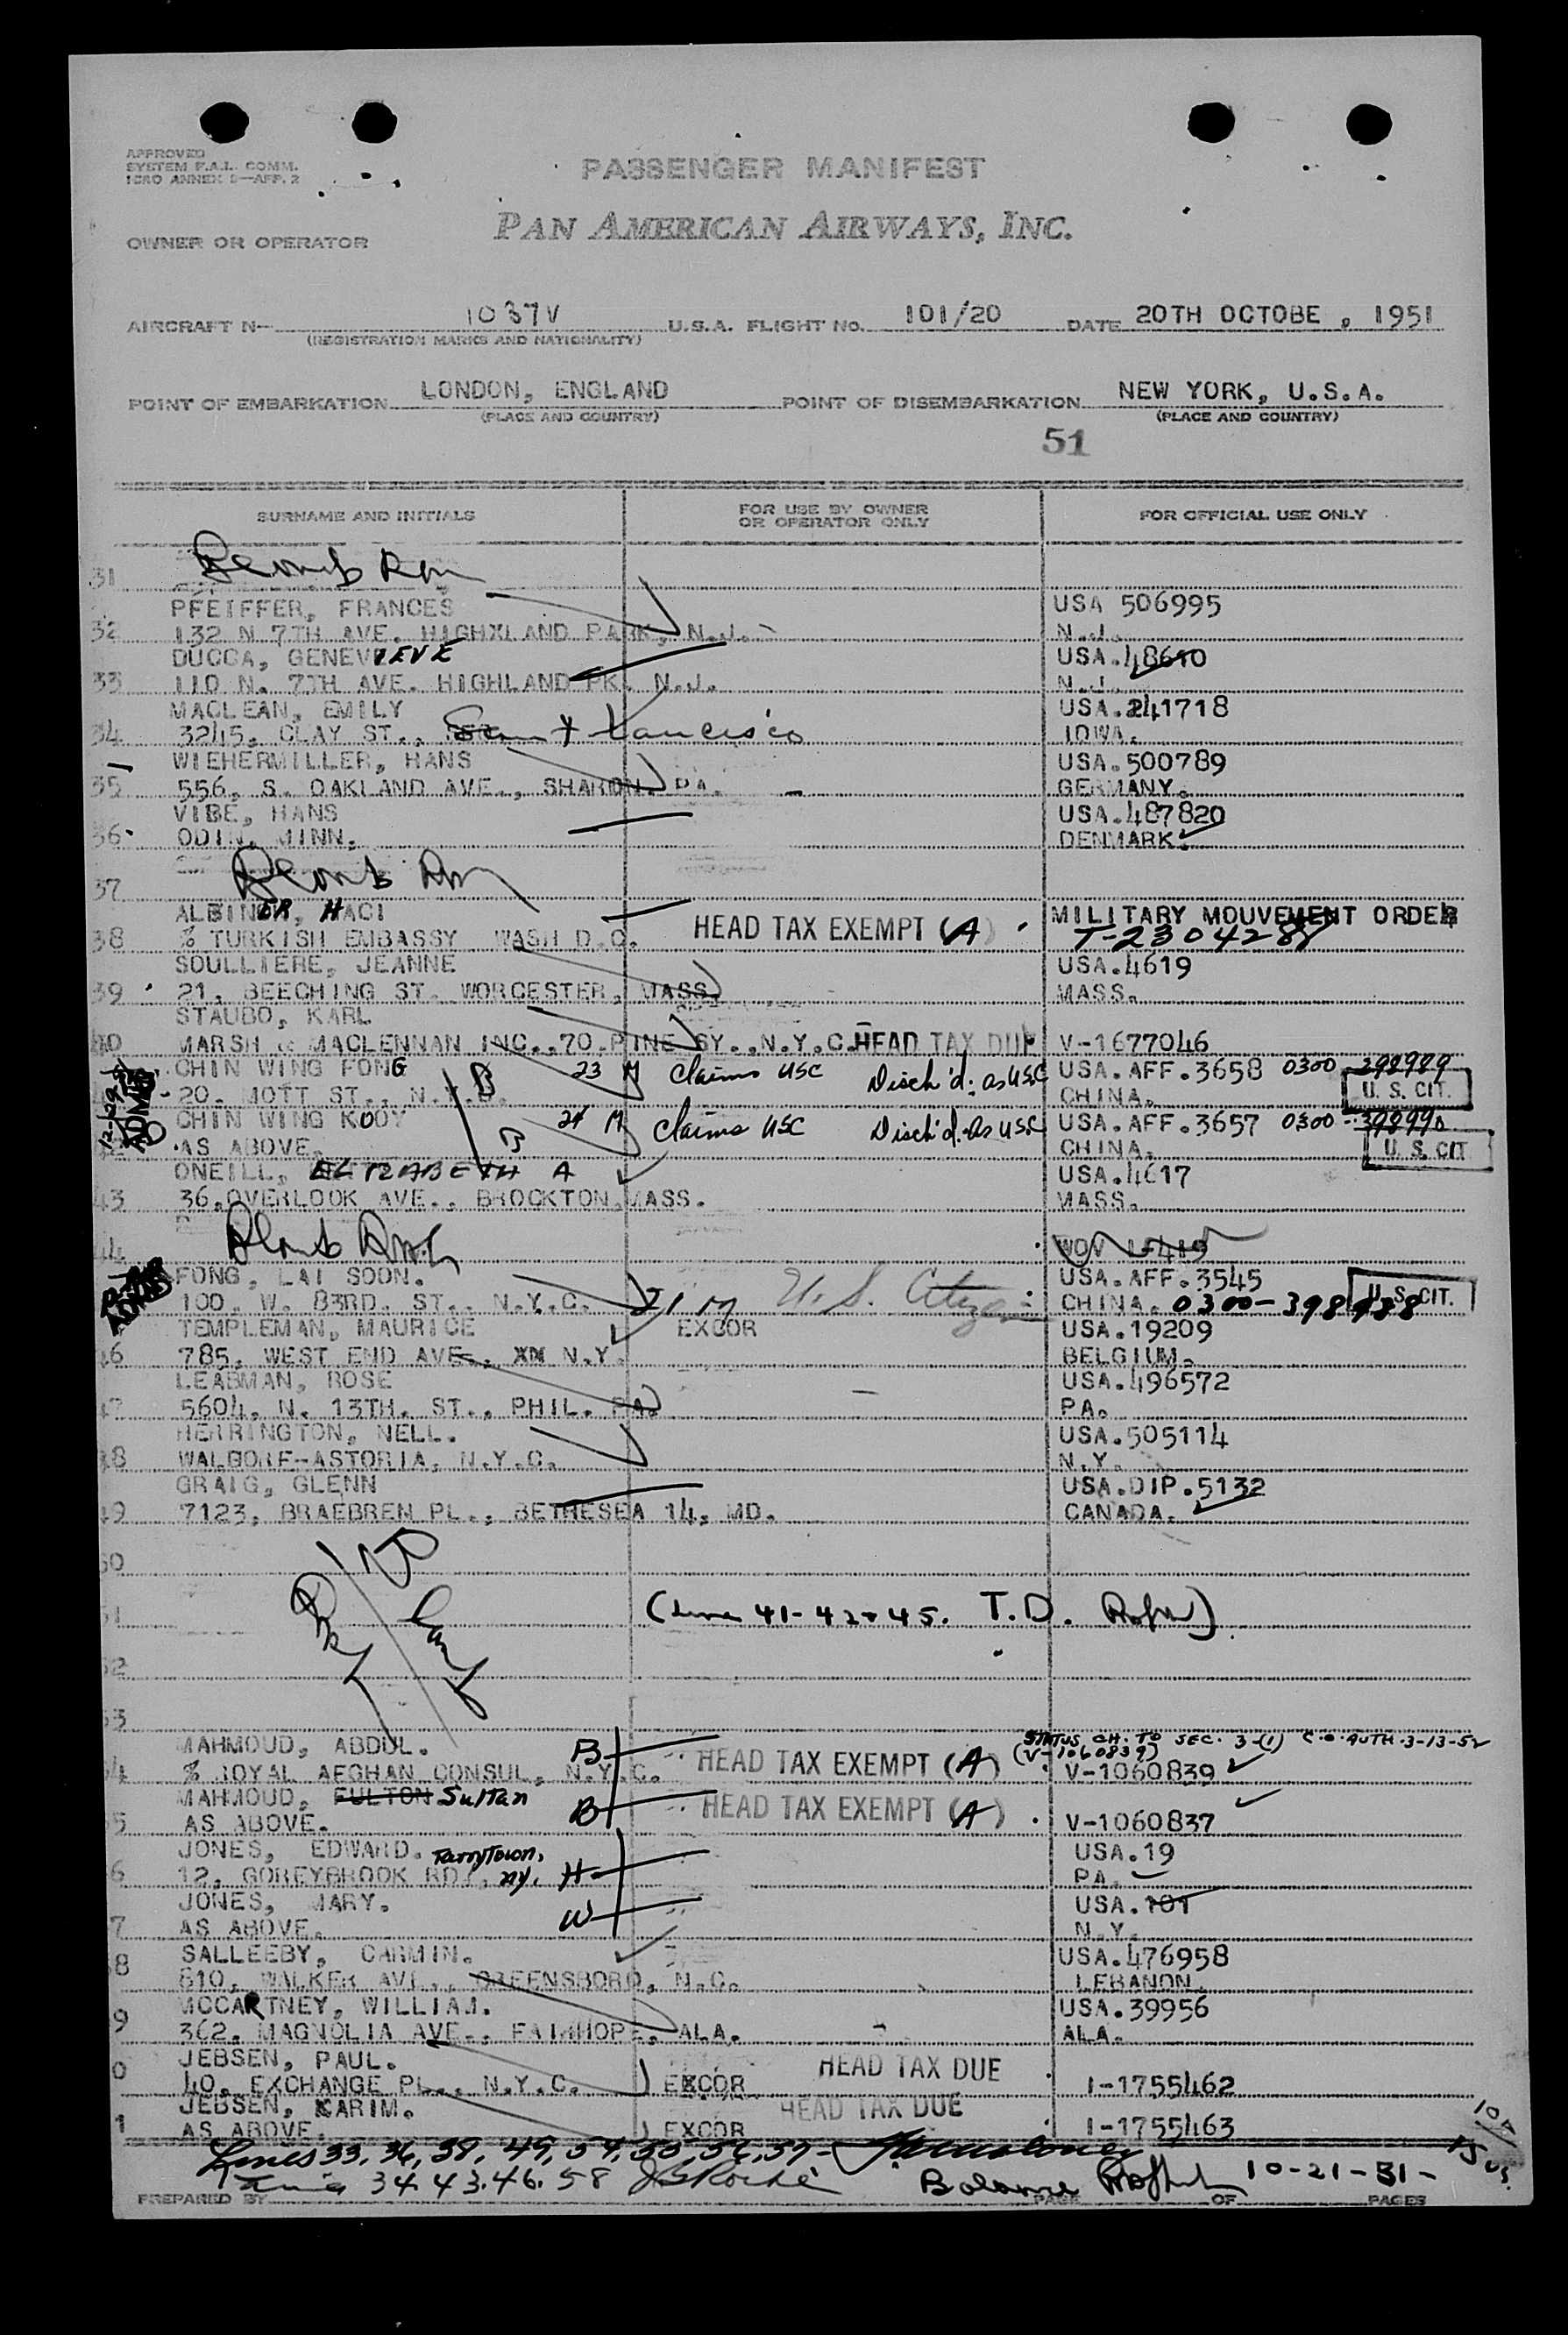 APPROVED
SYSTEM F.A.L. COMM.
ICAO ANNEX 9—APP. 2
PASSENGER MANIFEST
OWNER OR OPERATOR PAN AMERICAN AIRWAYS, INC.
AIRCRAFT N— 1037V U.S.A. FLIGHT NO. 101/20 DATE 20TH OCTOBE , 1951
(REGISTRATION MARKS AND NATIONALITY)
POINT OF EMBARKATION LONDON, ENGLAND POINT OF DISEMBARKATION NEW YORK, U.S.A.
(PLACE AND COUNTRY) (PLACE AND COUNTRY)
51
SURNAME AND INITIALS FOR USE BY OWNER OR OPERATOR ONLY FOR OFFICIAL USE ONLY
31
PFEIFFER, FRANCES USA 506995
32 132 N 7TH AVE. HIGHXLAND PARK, N.J. N.J.
DUCCA, GENEVIEVE USA.48610
33 110 N. 7TH AVE. HIGHLAND PK. N.J. N.J.
MACLEAN, EMILY USA.241718
34 3245, CLAY ST., San Francisco IOWA.
WIEHERMILLER, HANS USA.500789
35 556, S. OAKLAND AVE., SHARON. PA. GERMANY.
VIBE, HANS USA.487820
36 ODIN, MINN. DENMARK.
37
ALBINDR, HACI HEAD TAX EXEMPT (A) MILITARY MOUVEMENT ORDER
38 % TURKISH EMBASSY WASH D.C. T-2304288
SOULLIERE, JEANNE USA.4619
39 21, BEECHING ST. WORCESTER, MASS. MASS.
STAUBO, KARL
40 MARSH & MACLENNAN INC., 70 PINE SY., N.Y.C. HEAD TAX DUE V-1677046
CHIN WING FONG B 23 M Claims USC Disch'd: as USC USA.AFF.3658 0300-398989
20. MOTT ST., N.Y.C. CHINA. U. S. CIT.
CHIN WING KOOY B 24 M Claims USC Disch'd: as USC USA.AFF.3657 0300-398990
AS ABOVE. CHINA. U. S. CIT
ONEILL, ELIZABETH A USA.4617
43 36,OVERLOOK AVE., BROCKTON,MASS. MASS.
44
FONG, LAI SOON. USA.AFF.3545
100. W. 83RD. ST., N.Y.C. 21 M U.S. Citizen CHINA. 0300-398988 U. S. CIT.
TEMPLEMAN, MAURICE EXCOR USA.19209
46 785, WEST END AVE., XX N.Y. BELGIUM.
LEABMAN, ROSE USA.496572
47 5604, N. 13TH. ST., PHIL. PA. PA.
HERRINGTON, NELL. USA.505114
48 WALDORF-ASTORIA, N.Y.C. N.Y.
GRAIG, GLENN USA.DIP.5132
49 7123, BRAEBREN PL., BETHESEA 14, MD. CANADA.
50
51 (Line 41-42+45. T.D.
52
53
MAHMOUD, ABDUL. B HEAD TAX EXEMPT (A) STATUS CH. TO SEC. 3-(1) C.O. AUTH. 3-13-52 (V-1060839)
4 % ROYAL AFGHAN CONSUL, N.Y.C. V-1060839
MAHMOUD, FULTON Sultan B HEAD TAX EXEMPT (A)
5 AS ABOVE. V-1060837
JONES, EDWARD. Tarrytown, USA.19
6 12, GOREYBROOK RD., NY. H PA.
JONES, MARY. USA.101
7 AS ABOVE. W N.Y.
SALLEEBY, CARMIN. USA.476958
8 610, WALKER AVE., GREENSBORO, N.C. LEBANON.
MCCARTNEY, WILLIAM. USA.39956
9 362. MAGNOLIA AVE., FAIRHOPE, ALA. ALA.
JEBSEN, PAUL. HEAD TAX DUE
0 40, EXCHANGE PL., N.Y.C. EXCOR I-1755462
JEBSEN, KARIM. HEAD TAX DUE
1 AS ABOVE. EXCOR I-1755463
Lines 33, 36, 38, 49, 54, 55, 56, 57-
34.43.46.58 Balance 10-21-51-
PREPARED BY PAGE OF PAGES